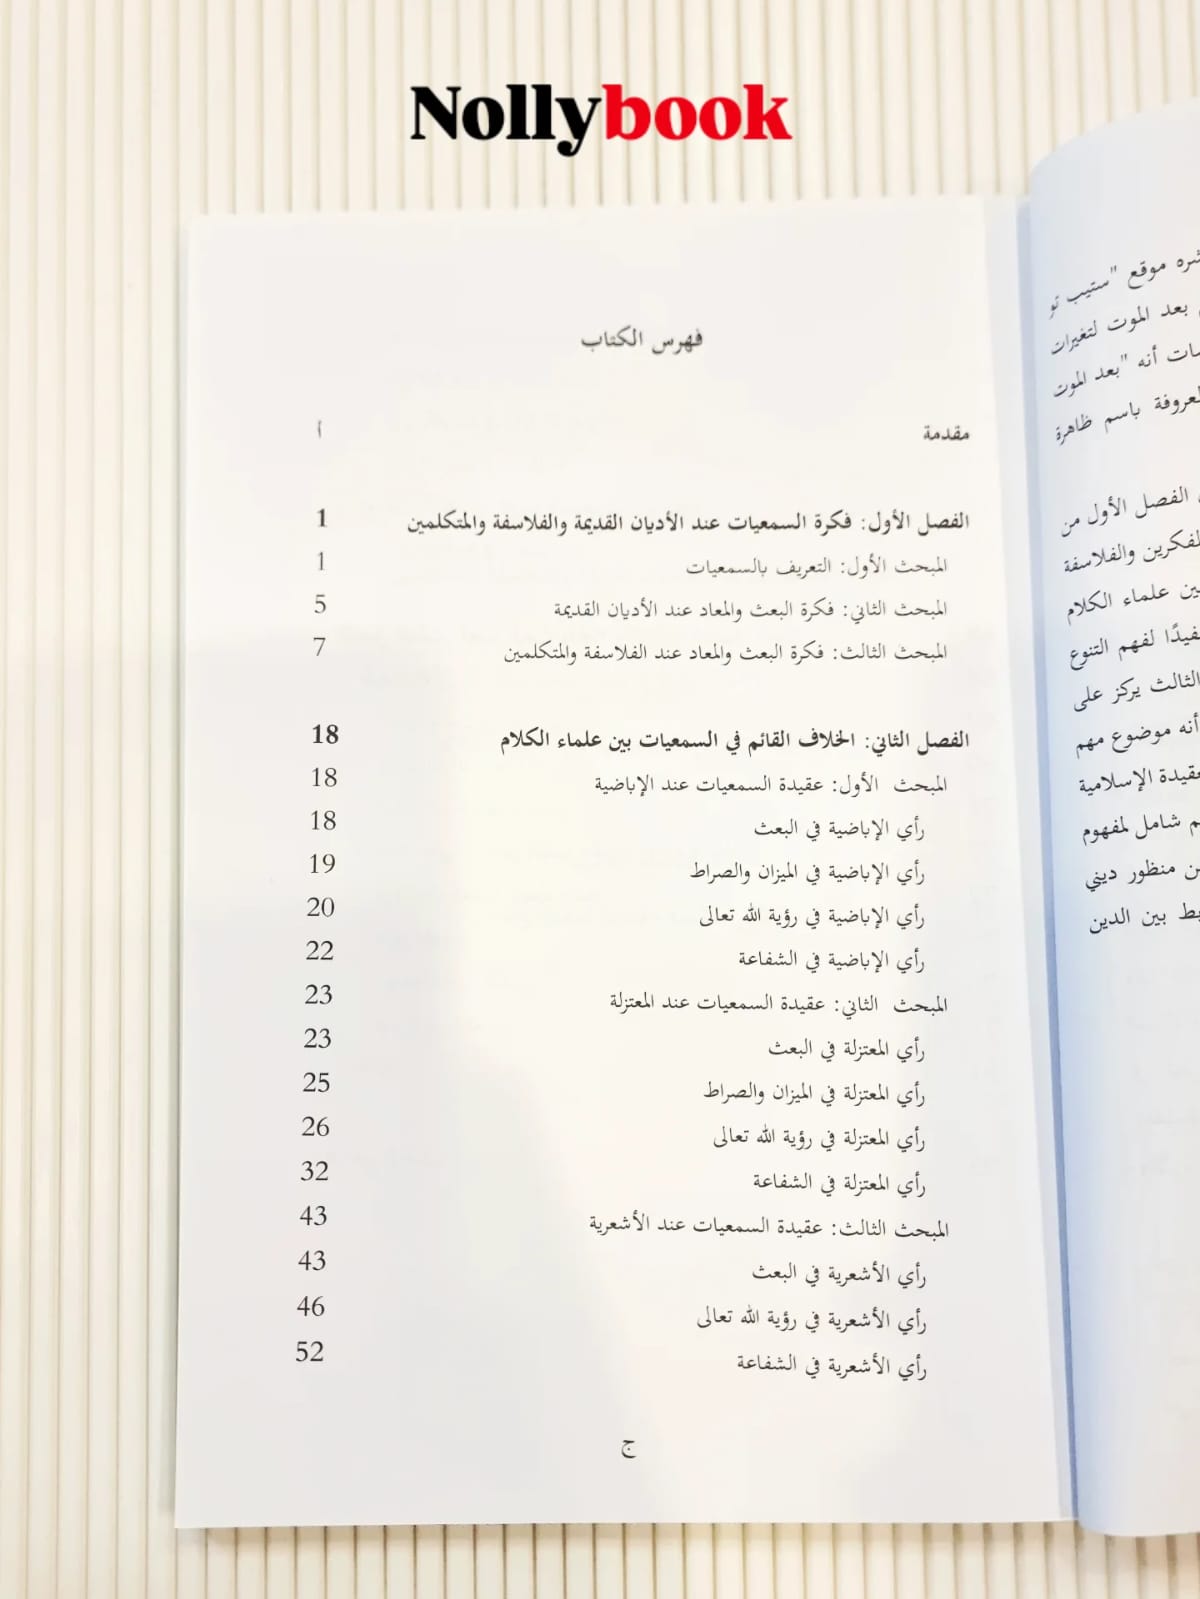 Nollybook
فهرس الكتاب
مقدمة أ
الفصل الأول: فكرة السمعيات عند الأديان القديمة والفلاسفة والمتكلمين 1
المبحث الأول: التعريف بالسمعيات 1
المبحث الثاني: فكرة البعث والمعاد عند الأديان القديمة 5
المبحث الثالث: فكرة البعث والمعاد عند الفلاسفة والمتكلمين 7
الفصل الثاني: الخلاف القائم في السمعيات بين علماء الكلام 18
المبحث الأول: عقيدة السمعيات عند الإباضية 18
رأي الإباضية في البعث 18
رأي الإباضية في الميزان والصراط 19
رأي الإباضية في رؤية الله تعالى 20
رأي الإباضية في الشفاعة 22
المبحث الثاني: عقيدة السمعيات عند المعتزلة 23
رأي المعتزلة في البعث 23
رأي المعتزلة في الميزان والصراط 25
رأي المعتزلة في رؤية الله تعالى 26
رأي المعتزلة في الشفاعة 32
المبحث الثالث: عقيدة السمعيات عند الأشعرية 43
رأي الأشعرية في البعث 43
رأي الأشعرية في رؤية الله تعالى 46
رأي الأشعرية في الشفاعة 52
ج
موقع "ستيب تو
بعد الموت لتغيرات
أنه "بعد الموت
باسم ظاهرة
الفصل الأول من
والفلاسفة
علماء الكلام
لفهم التنوع
الثالث يركز على
أنه موضوع مهم
الإسلامية
شامل لمفهوم
منظور ديني
بين الدين